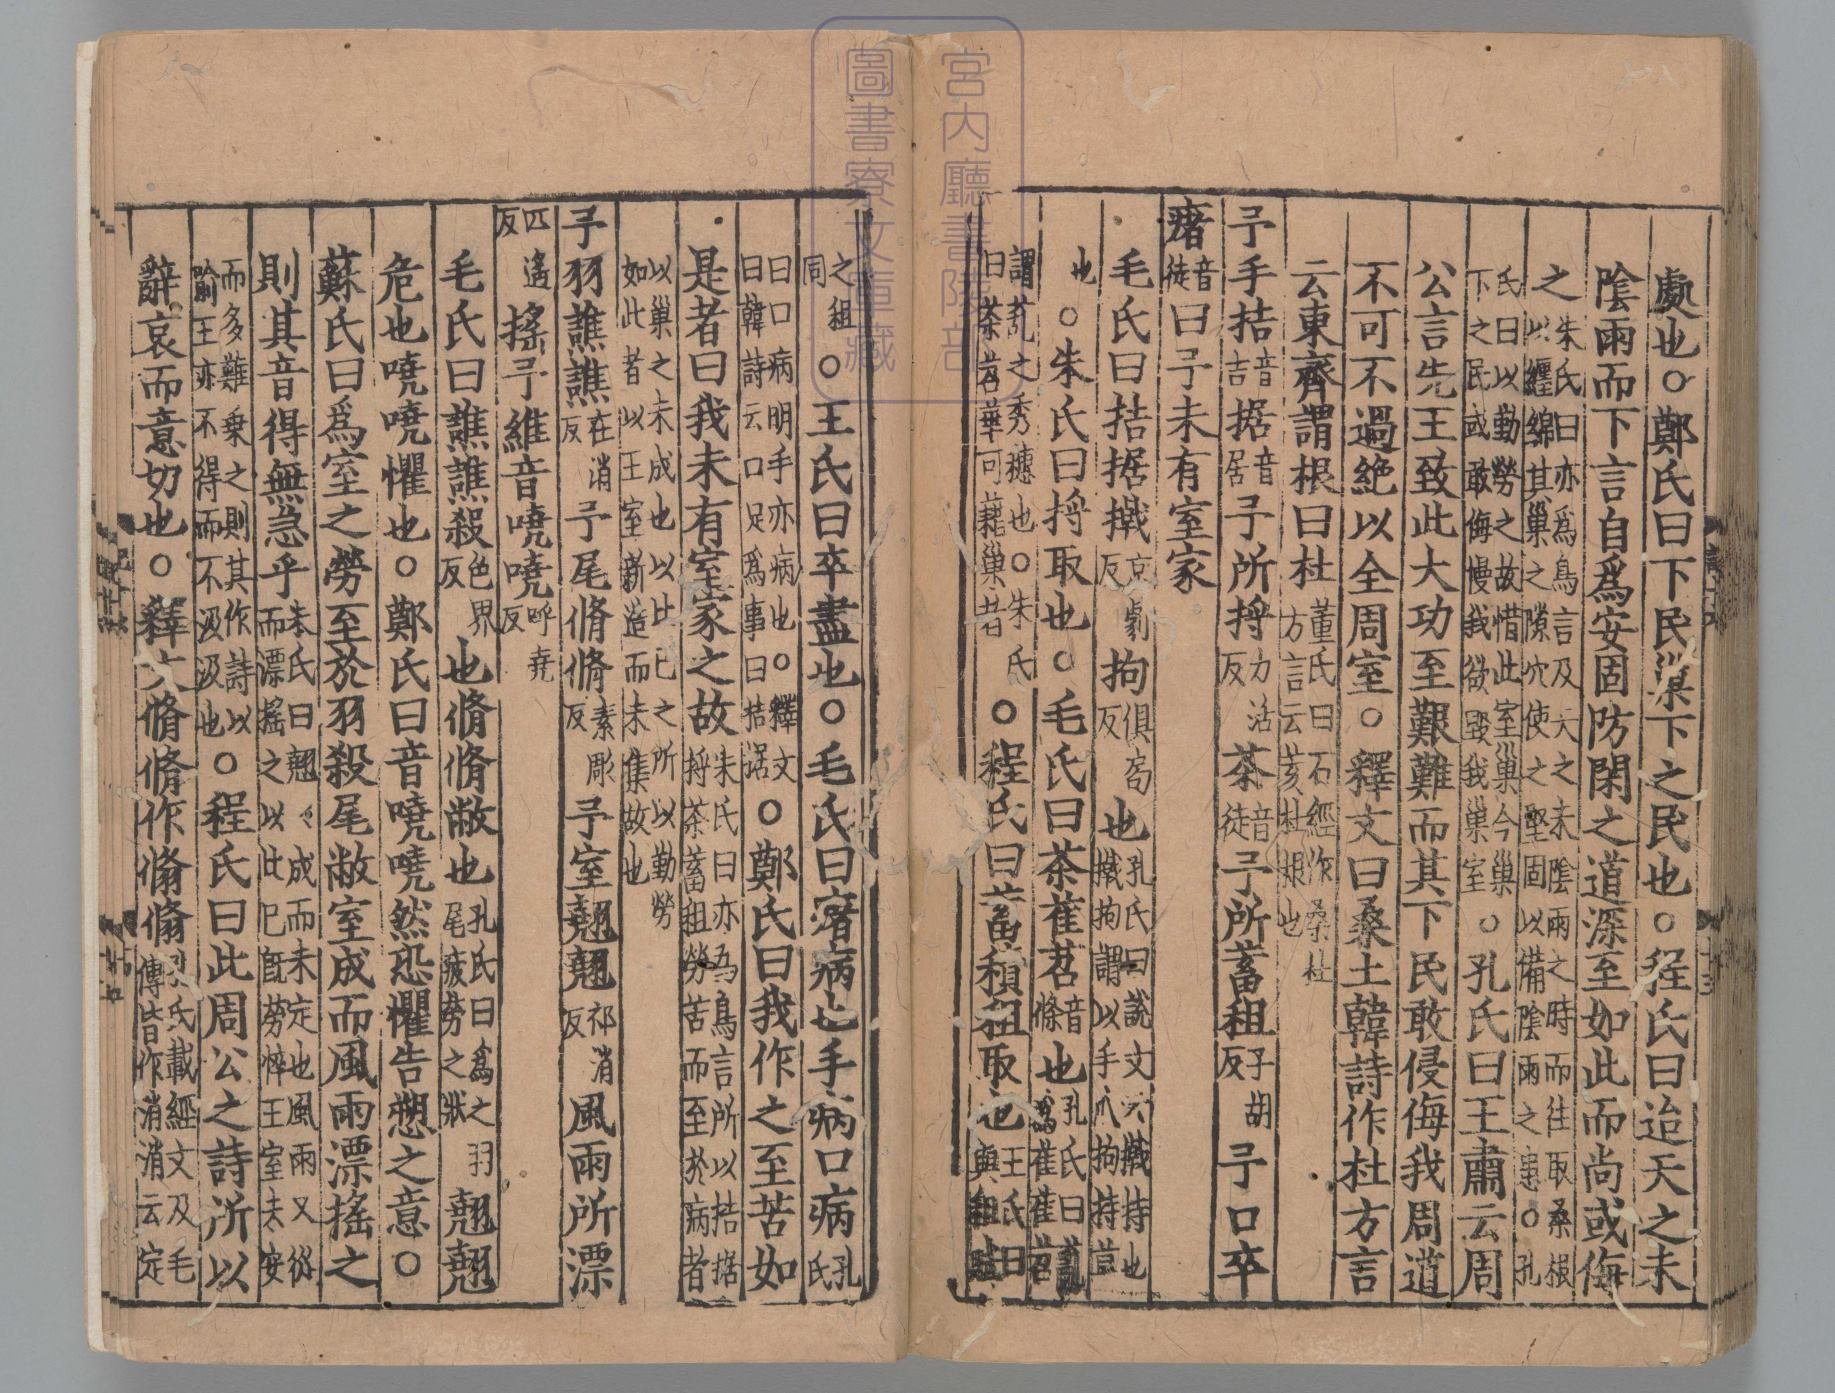 處也○鄭氏曰下民巢下之民也○程氏曰迨天之未
陰雨而下言自爲安固防閑之道深至如此而尚或侮
之朱氏曰亦爲鳥言及天之未陰雨之時而往取桑根以纏綿其巢之隙穴使之堅固以備陰雨之患○孔
氏曰以勤勞之故惜此室巢今巢下之民或敢侮慢我欲毀我巢室○孔氏曰王肅云周
公言先王致此大功至艱難而其下民敢侵侮我周道
不可不過絶以全周室○釋文曰桑土韓詩作杜方言
云東齊謂根曰杜董氏曰石經作桑杜方言云荄杜根也
予手拮音吉据音居予所捋力活反荼音徒予所蓄租子胡反予口卒
瘏音徒曰予未有室家
毛氏曰拮据撠京劇反挶俱局反也孔氏曰說文云撠持也撠挶謂以手爪挶持草
也○朱氏曰捋取也○毛氏曰荼萑苕音條也孔氏曰薍爲萑萑苕
謂薍之秀穗也○朱氏曰荼萑華可藉巢者○程氏曰蓄積租取也王氏曰與
之租同○王氏曰卒盡也○毛氏曰瘏病也手病口病孔氏
曰口病明手亦病也○釋文曰韓詩云口足爲事曰拮据○鄭氏曰我作之至苦如
是者曰我未有室家之故朱氏曰亦爲鳥言所以拮据捋荼蓄租勞苦而至於病者
以巢之未成也以比己之所以勤勞如此者以王室新造而未集故也
予羽譙譙在消反予尾脩脩素彫反予室翹翹祁消反風雨所漂
匹遙反搖予維音嘵嘵呼堯反
毛氏曰譙譙殺色界反也脩脩敝也孔氏曰爲之羽尾疲勞之狀翹翹
危也嘵嘵懼也○鄭氏曰音嘵嘵然恐懼告愬之意○
蘇氏曰爲室之勞至於羽殺尾敝室成而風雨漂搖之
則其音得無急乎朱氏曰翹翹成而未定也風雨又從而漂搖之以比己既勞悴王室未安
而多難乗之則其作詩以喻王亦不得而不汲汲也○程氏曰此周公之詩所以
辭哀而意切也○釋文脩脩作翛翛氏載經文及毛傳皆作消消云定